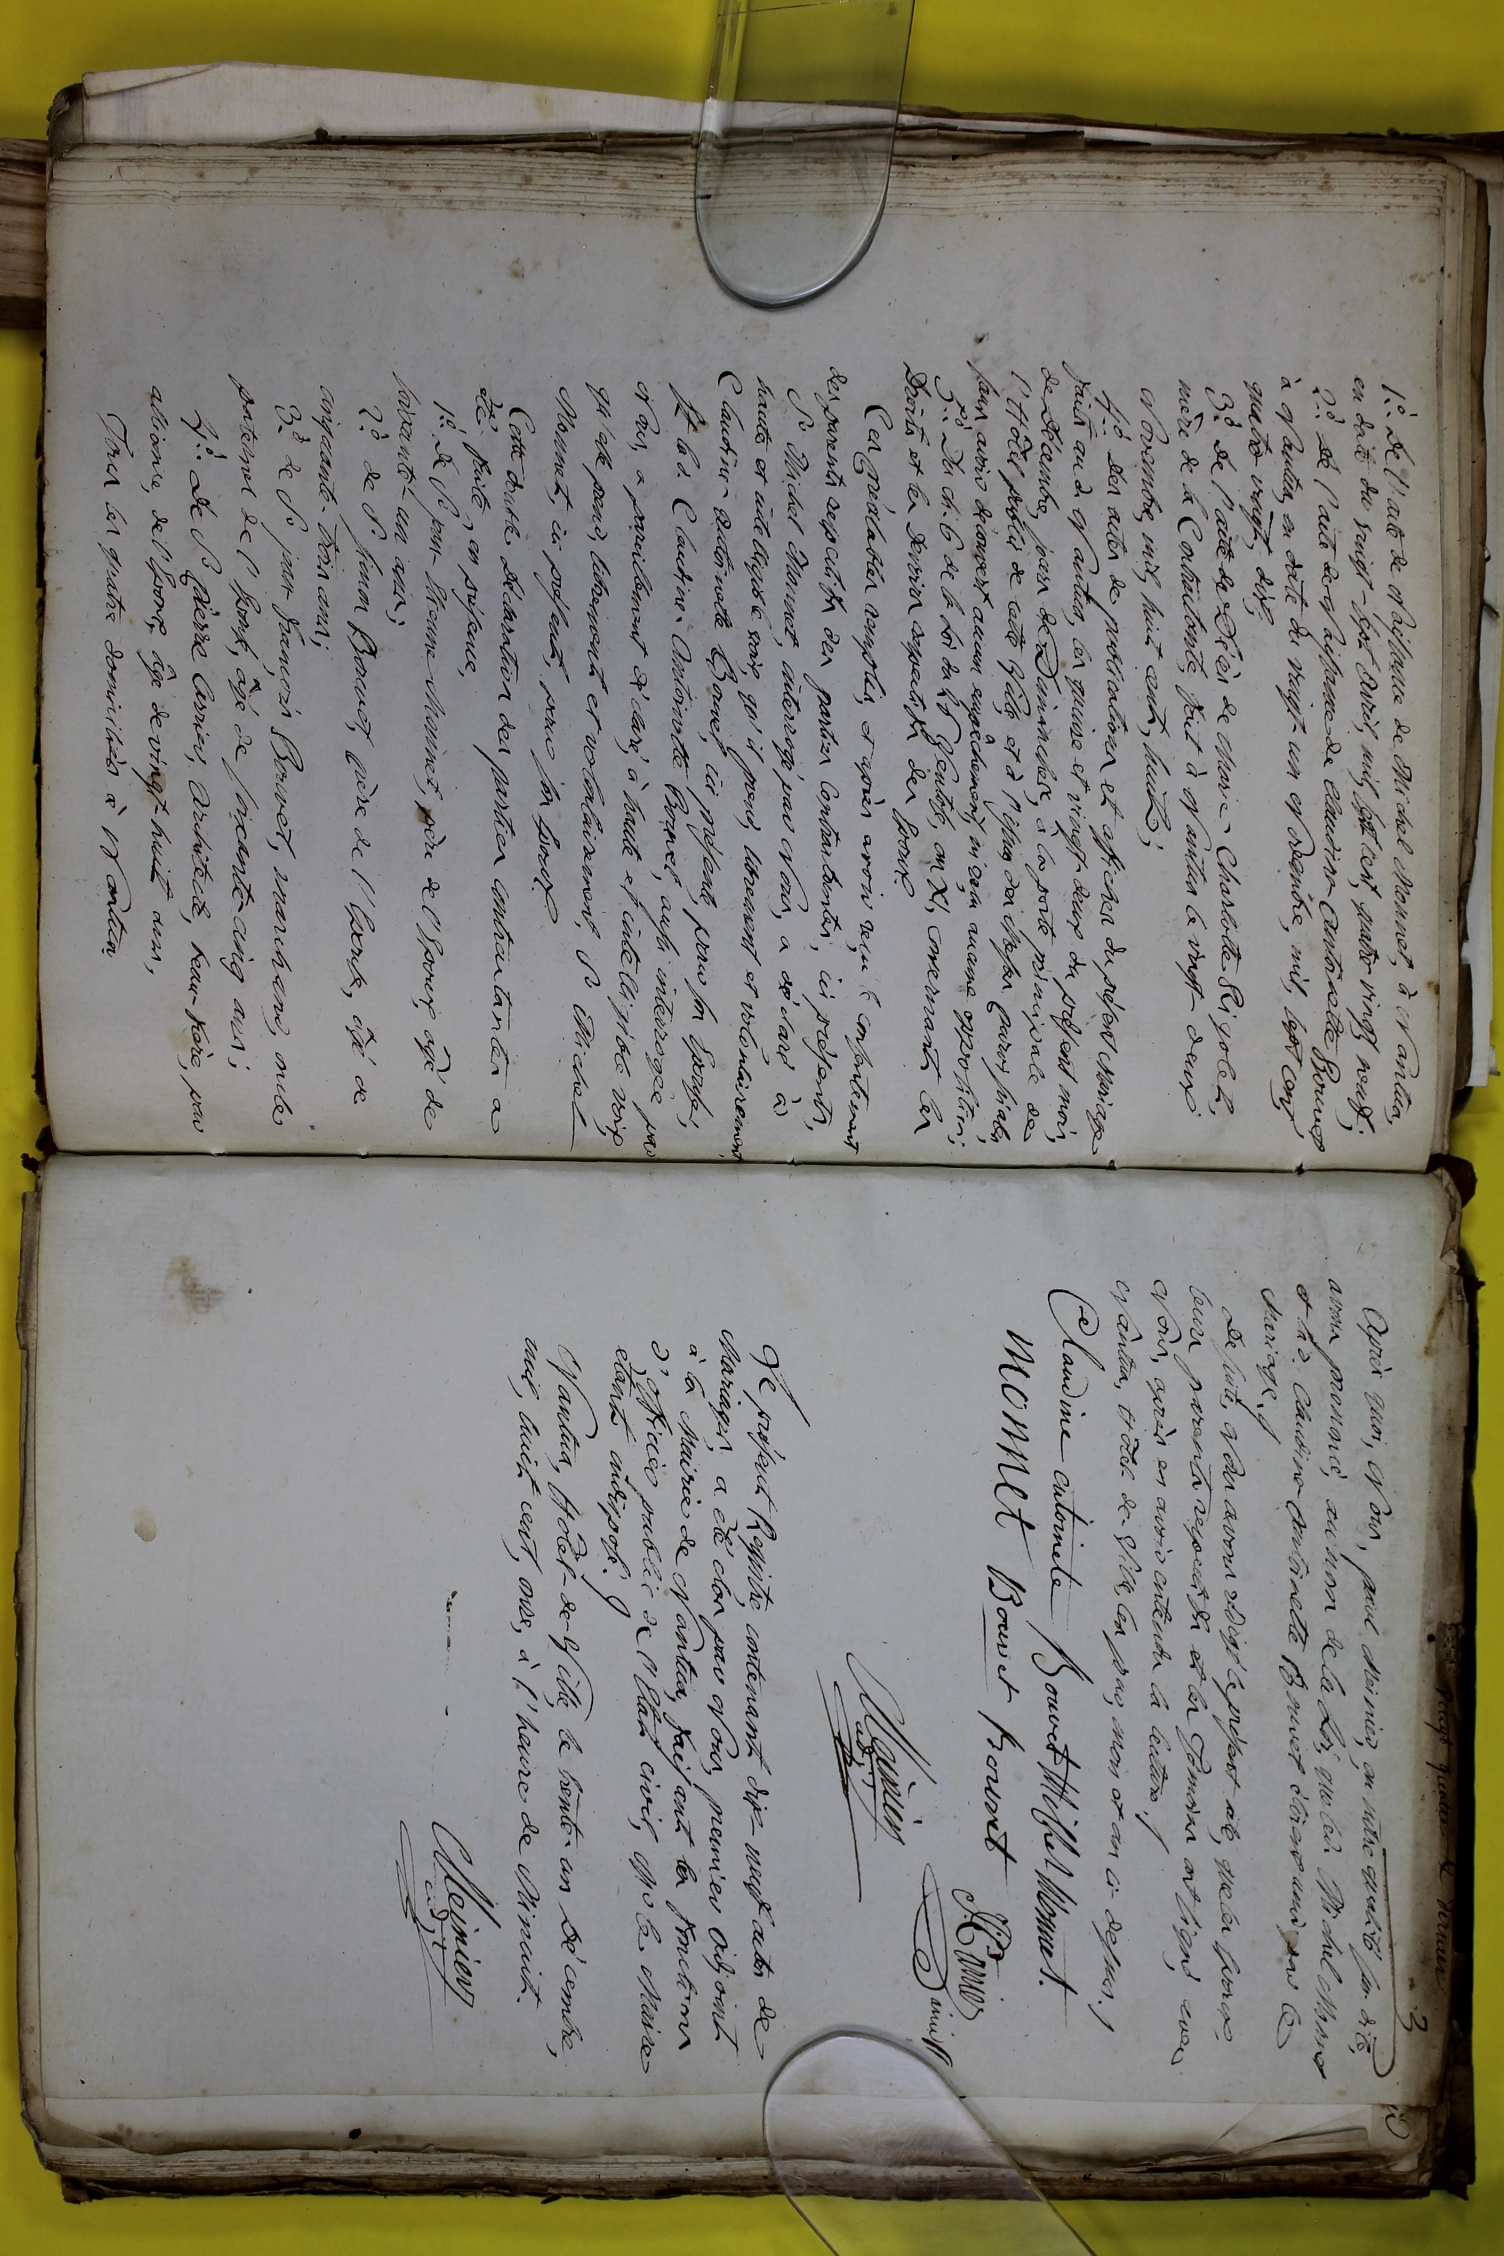 1.o de l'acte de Naissance de Michel Monnet, à Nantua,
en date du vingt-sept avril mil sept cent quatre vingt neuf;
2.o de l'acte de Naissance de Claudine Antoinette Bouvet
à Nantua, en date du vingt un Novembre, mil sept cent
quatre vingt dix;
3.o de l'acte de Décès de Marie-Charlotte Rigolet,
mère de la Contractante, fait à Nantua le vingt-deux
Novembre mil huit cent huit;
4.o des actes de publications et affiches du présent Mariage
faits au d. Nantua, les quinze et vingt-deux du présent mois
de Décembre, jours de Dimanches, à la porte principale de
l'Hôtel public de cette Ville, et à l'issue des Messes paroissiales
sans avoir découvert aucun empêchement, ni eu aucune opposition;
5.o Du ch. 6 de la Loi du Ventose, an XI, concernant les
Droits et les Devoirs respectifs des Epoux.
Ces préalables remplis, et après avoir reçu le consentement
des parents respectifs des parties Contractantes, ici présents,
S.r Michel Monnet, interrogé par Nous, a déclaré à
haute et intelligible voix, qu'il prend librement et volontairement
Claudine Antoinette Bouvet, ici présente, pour son Epouse;
Et la d. Claudine Antoinette Bouvet, aussi interrogée par
Nous, a pareillement déclaré, à haute et intelligible voix,
qu'elle prend, librement et volontairement, S.r Michel
Monnet, ici présent, pour son Epoux.
Cette double déclaration des parties contractantes a
été faite, en présence,
1.o de S.r jean-Etienne Monnet, père de l'Epoux, âgé de
soixante-un ans;
2.o de S.r Bouvet, père de l'Epouse, âgé de
cinquante trois ans;
3.o de S.r jean françois Bouvet, marchand, oncle
paternel de l'Epouse, âgé de soixante cinq ans;
4.o de S.r Pierre, Architecte, beau-frère, par
alliance, de l'Epoux, âgé de vingt huit ans,
Tous les quatre domiciliés à Nantua
3
Après quoi, Nous, paul Meinier, en notre qualité susdite,
avons prononcé, au nom de la Loi, que les d. Michel Monnet
et la d. Claudine Antoinette Bouvet étoient unis par le
Mariage.
De suite, Nous avons rédigé le présent acte, que les Epoux,
leurs parents respectifs et les Témoins ont signé avec
Nous, après en avoir entendu la lecture.
Nantua, Hôtel de Ville, les jour, mois et an ci-dessus.
Claudine antoinete Bouvet Michel Monnet.
monnet Bouvet bouvet
Meinier
adj.t
Le présent Registre contenant dix-neuf actes de
Mariages, a été clos par Nous, premier Adjoint
à la Mairie de Nantua, faisant les fonctions
d'officier public de l'Etat civil, M. le Maire
étant indisposé.
Nantua, Hôtel-de-Ville, le trente-un décembre,
mil huit cent onze, à l'heure de Minuit.
Meinier
adj.t